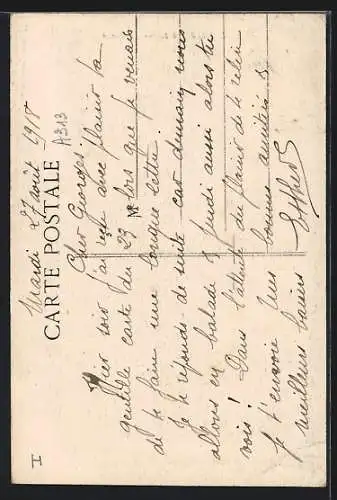 Mardi 27 août 1918
CARTE POSTALE
A313
Cher Georges,
Hier soir j'ai reçu avec plaisir ta
gentille carte du 23 lors que je venais
M
de te faire une longue lettre.
Je te réponds de suite car demain nous
allons en balade & jeudi aussi alors tu
vois! Dans l'attente du plaisir de te relire
je t'envoie mes bonnes amitiés &
meilleurs baisers
I